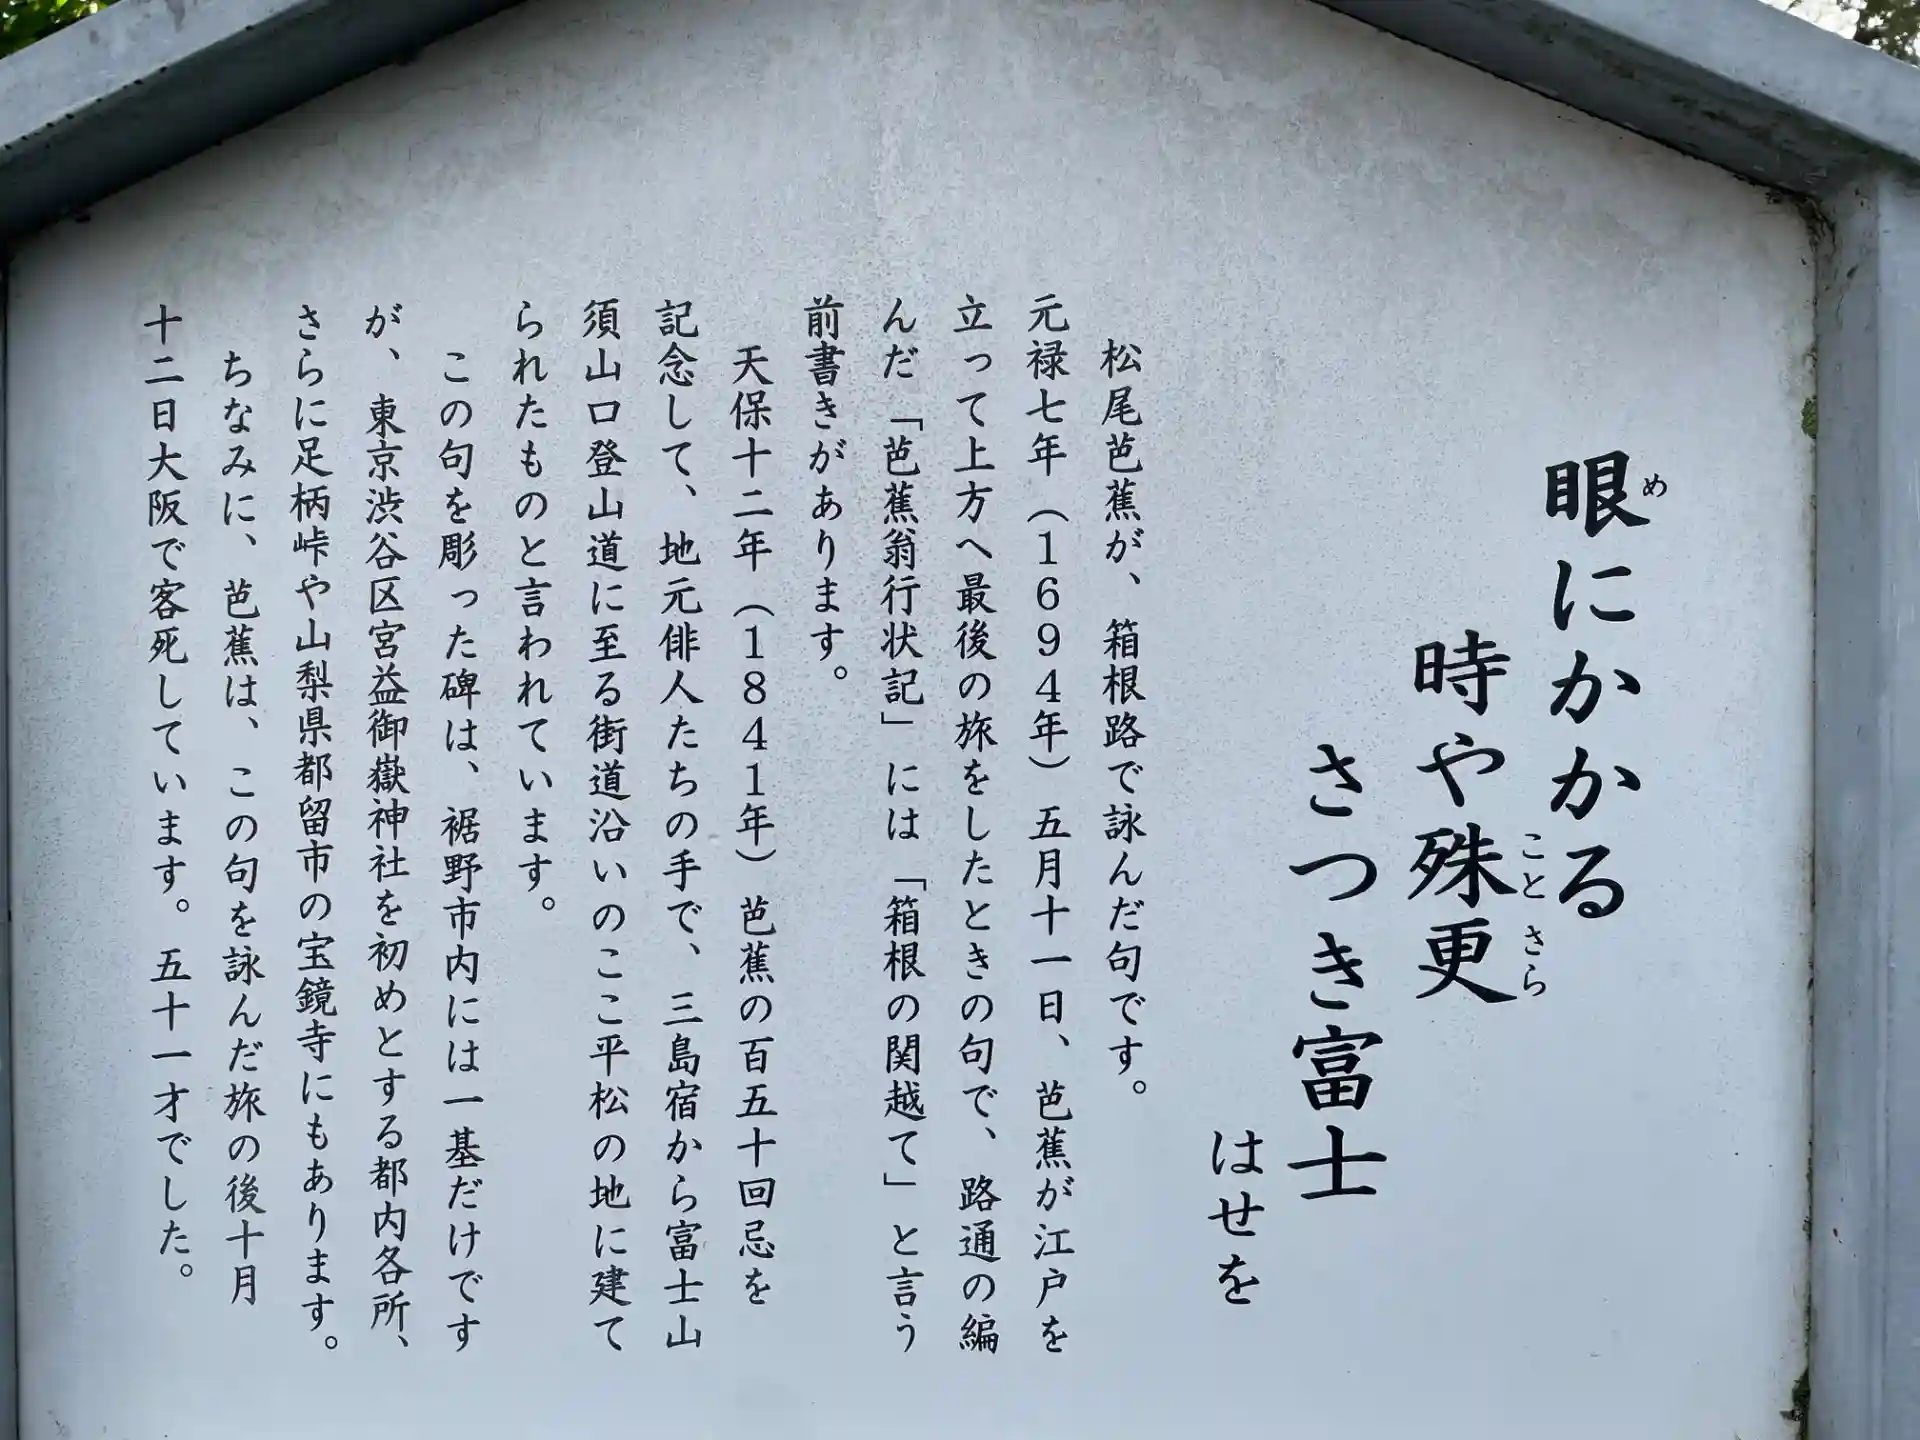 眼にかかる
め
時や殊更
ことさら
さつき富士
はせを
松尾芭蕉が、箱根路で詠んだ句です。
元禄七年（1694年）五月十一日、芭蕉が江戸を
立って上方へ最後の旅をしたときの句で、路通の編
んだ「芭蕉翁行状記」には「箱根の関越て」と言う
前書きがあります。
天保十二年（1841年）芭蕉の百五十回忌を
記念して、地元俳人たちの手で、三島宿から富士山
須山口登山道に至る街道沿いのここ平松の地に建て
られたものと言われています。
この句を彫った碑は、裾野市内には一基だけです
が、東京渋谷区宮益御嶽神社を初めとする都内各所、
さらに足柄峠や山梨県都留市の宝鏡寺にもあります。
ちなみに、芭蕉は、この句を詠んだ旅の後十月
十二日大阪で客死しています。五十一才でした。